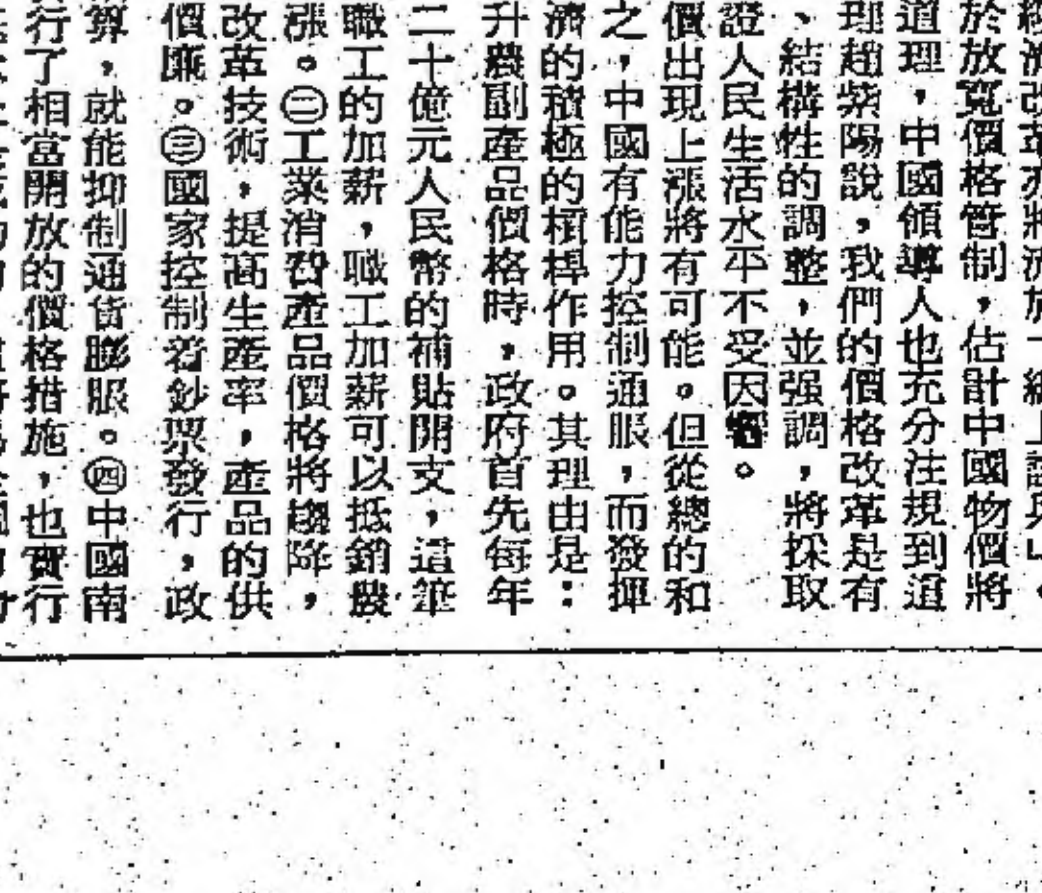 經濟改革亦將流於「紙上談兵」。
於放寬價格管制，估計中國物價將
道理，中國領導人也充分注規到這
理趙紫陽說，我們的價格改革是有
、結構性的調整，並强調，將採取
證人民生活水平不受因響。
價出現上漲將有可能。但從總的和
之，中國有能力控制通脹，而發揮
濟的積極的槓桿作用。其理由是：
升農副產品價格時，政府首先每年
二十億元人民幣的補貼開支，這筆
職工的加薪，職工加薪可以抵銷農
漲。㊁工業消費產品價格將趨降，
改革技術，提高生產率，產品的供
價廉。㊂國家控制着鈔票發行，政
算，就能抑制通貨膨脹。㊃中國南
行了相當開放的價格措施，也實行